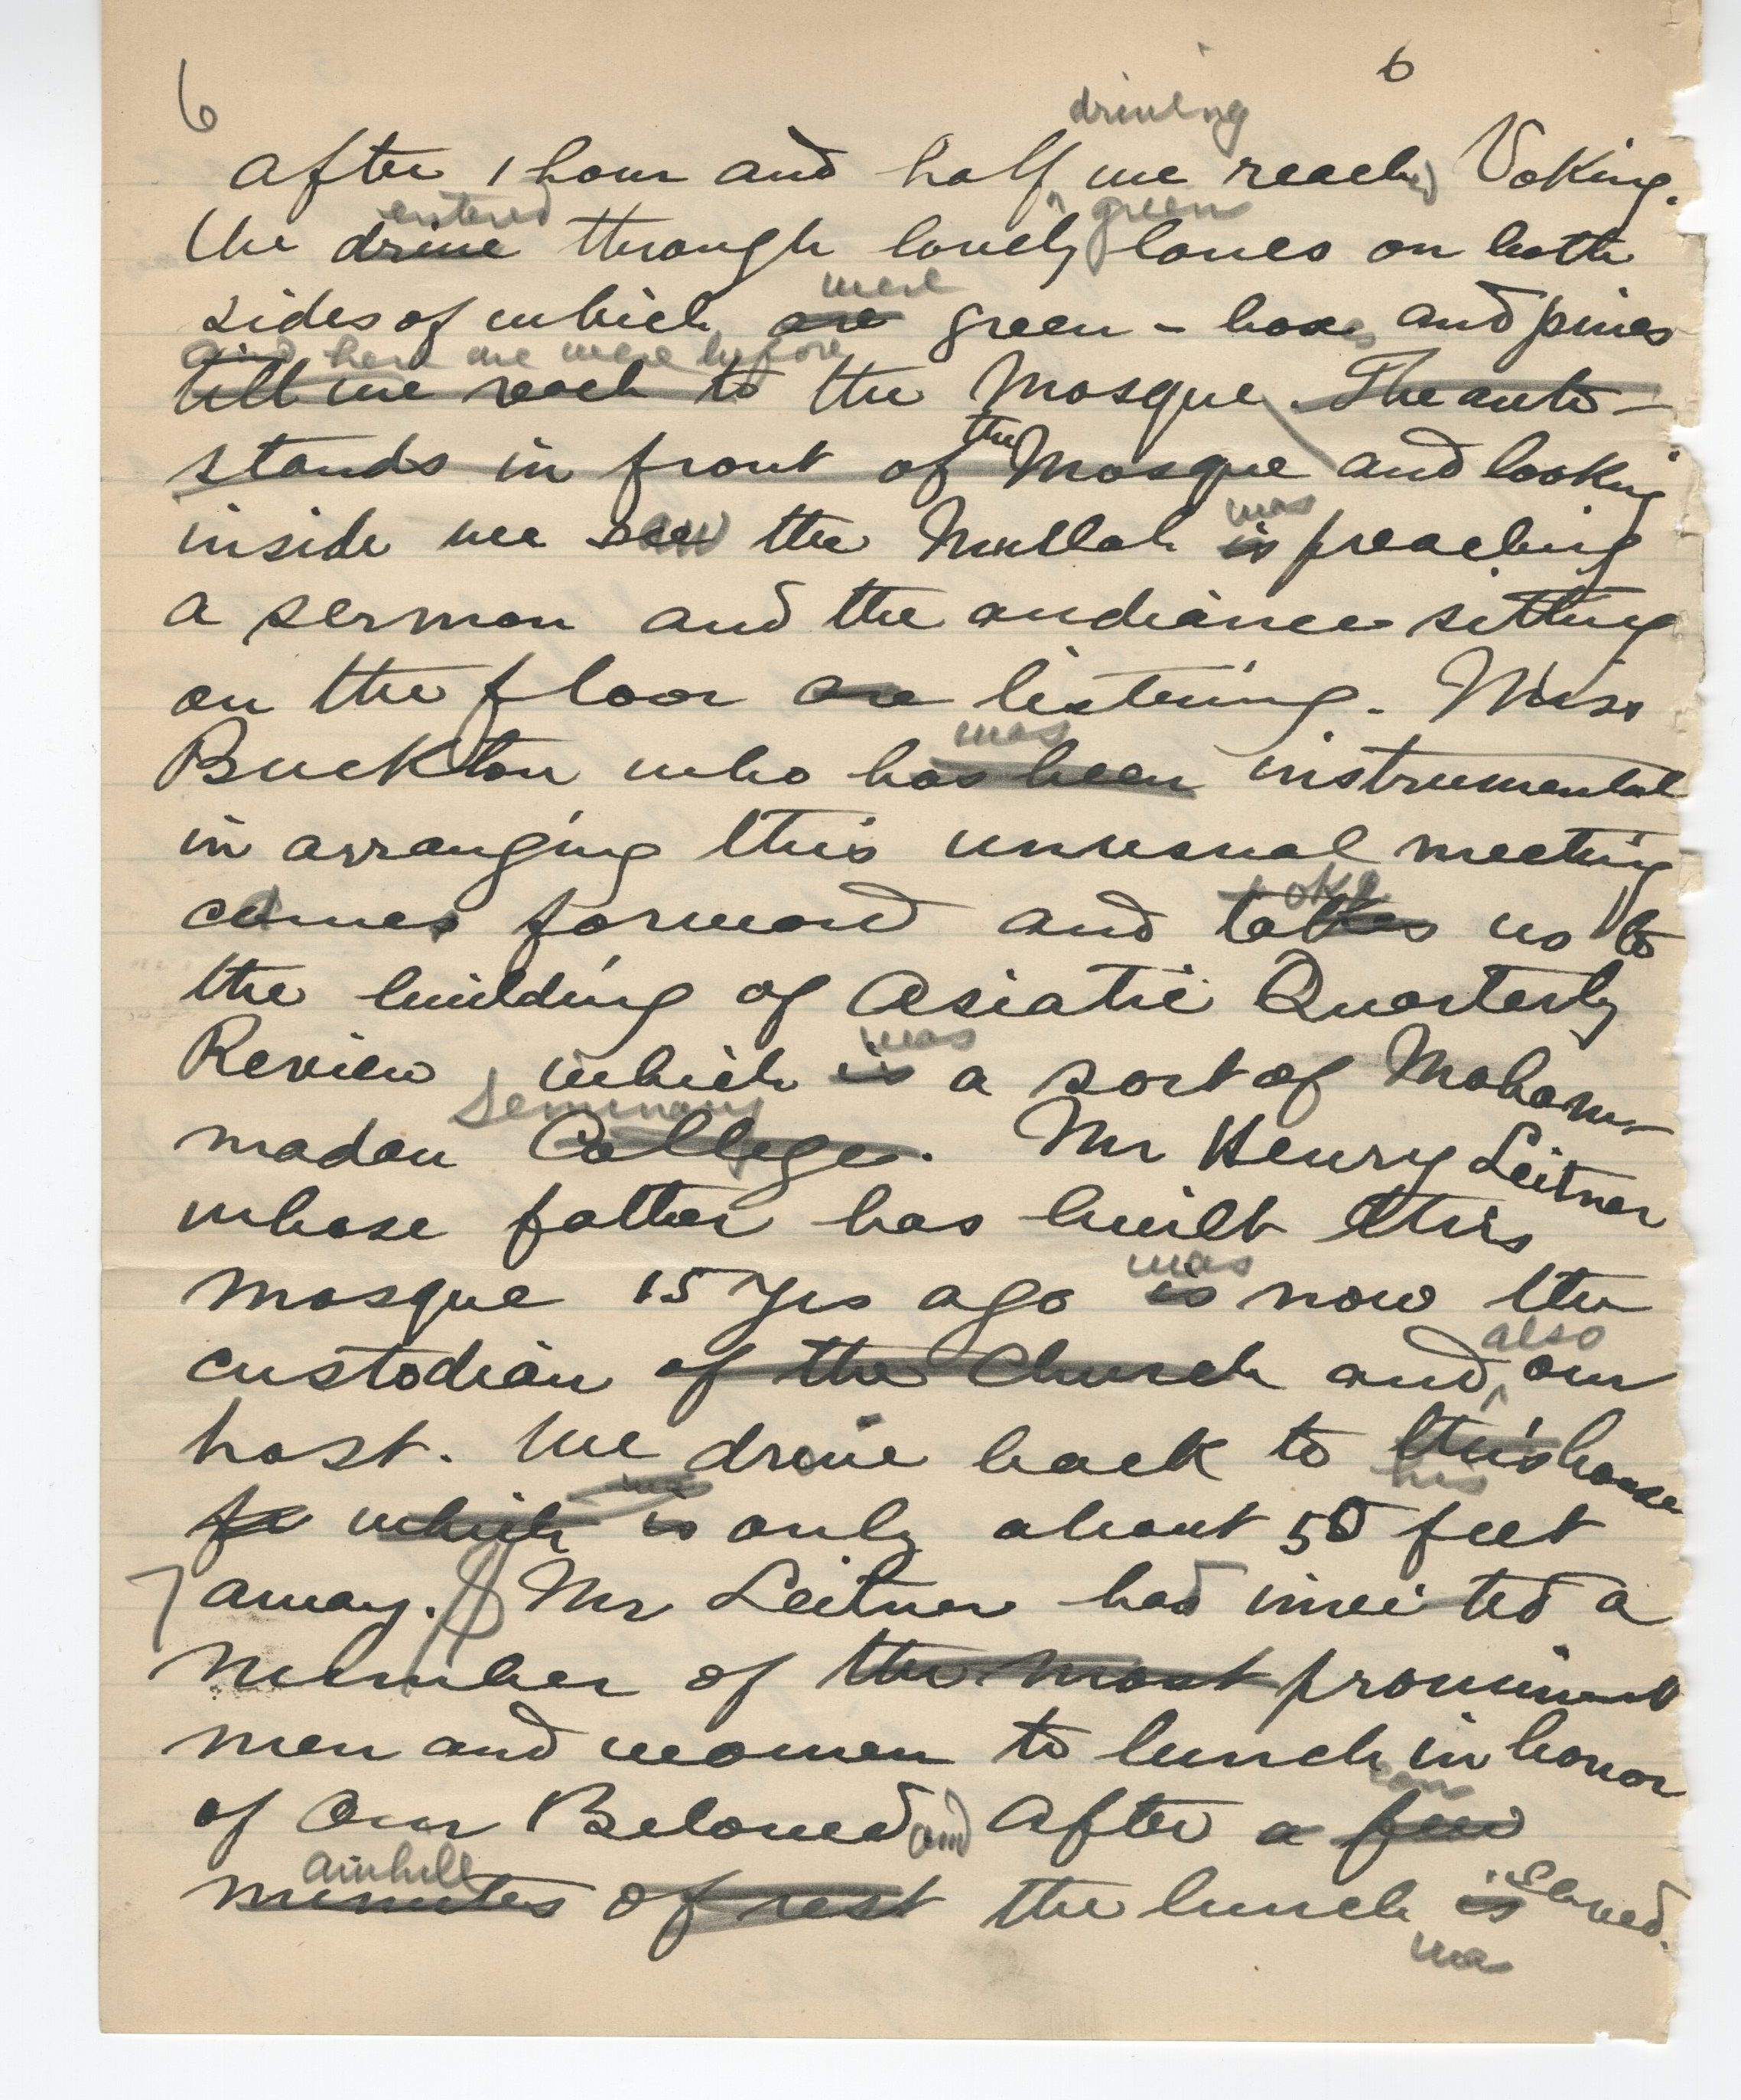 6 6
driving
After 1 hour and half ^ we reached Voking.
entered green
We drive through lovely lanes on both
were
sides of which are green - boxes and pines
and here we were before
till we reach to the Mosque. The auto-
stands in front of the Mosque and looking
was
inside we saw the Mullah is preaching
a sermon and the audiance sitting
on the floor are listening. Miss
was
Buckton who has been instrumental
in arranging this unusual meeting
toke
comes forward and takes us to
the building of Asiatic Quarterly
was
Review, which is a sort of Moham-
seminary
madan College. Mr Henry Leitner
whose father has built this
was
mosque 15 yrs ago is now the
also
custodian of the Church and ^ our
host. We drove back to this house
was his
for which is only about 50 feet
away. Mr Leitner had invited a
number of the most prominent
men and women to lunch in honor
of Our Beloved and After a few
awhile
minutes of rest the lunch is served.
was